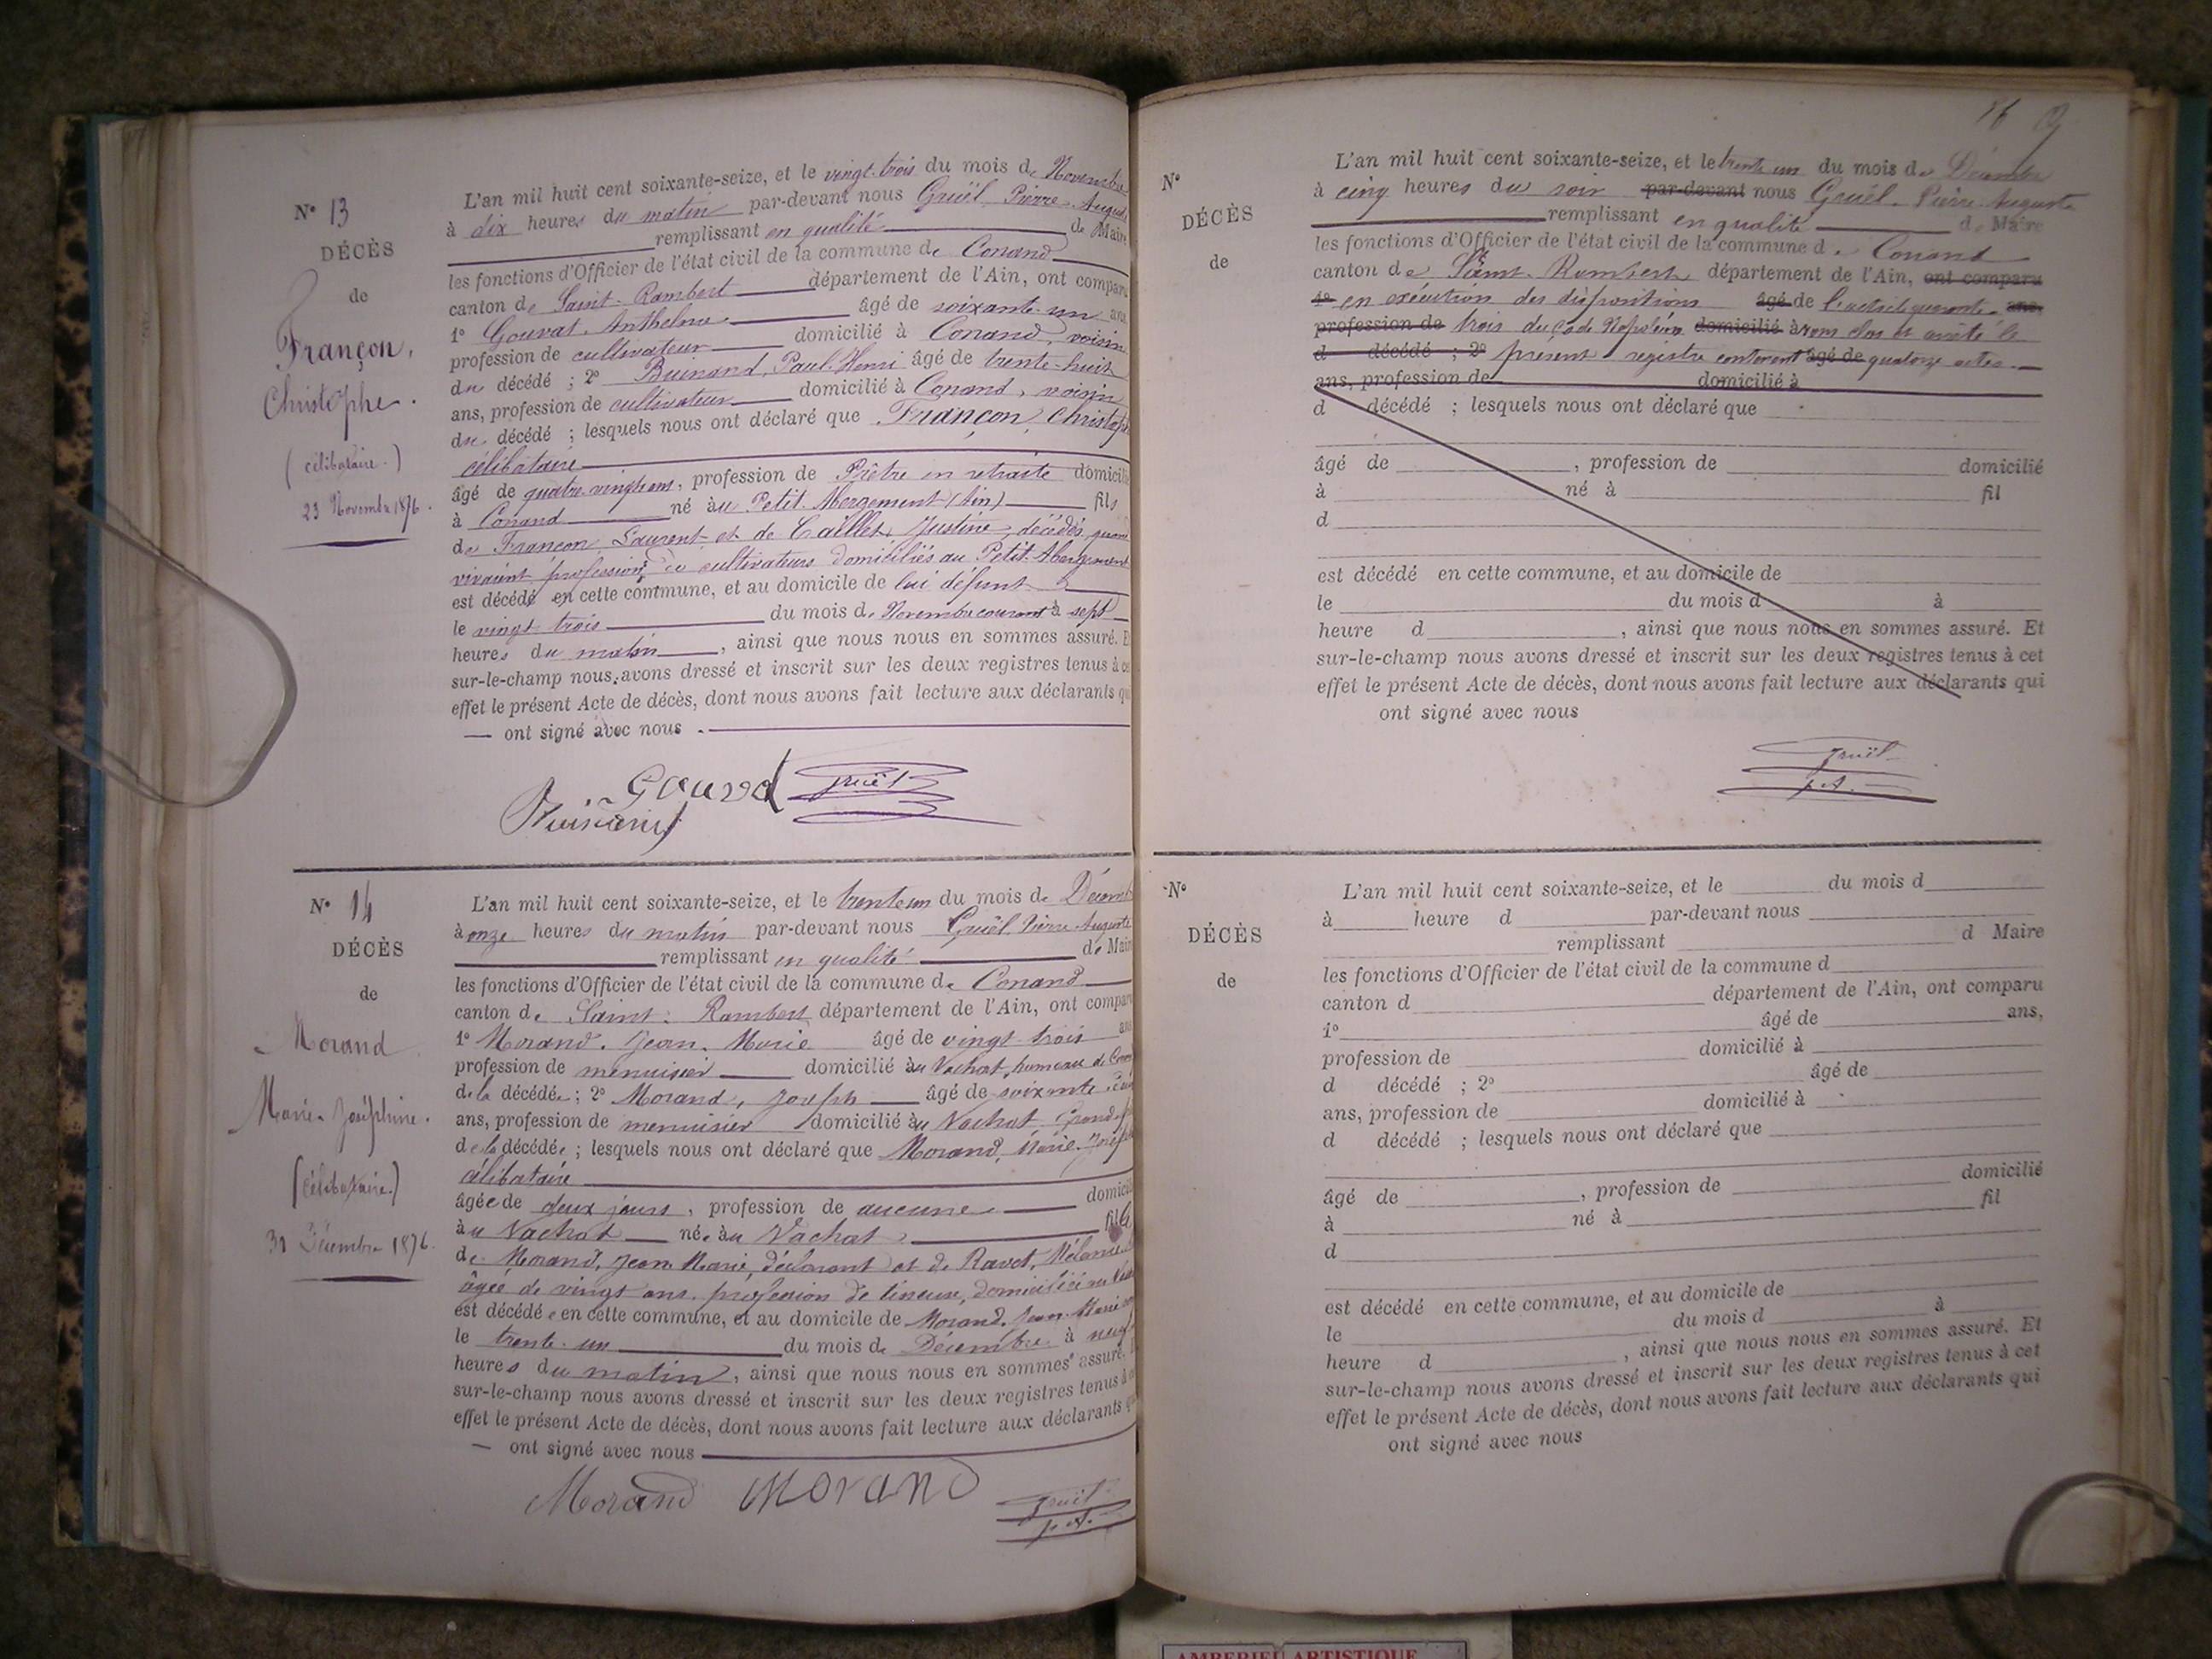 N° 13
DÉCÈS
de
Françon,
Christophe.
(célibataire.)
23 Novembre 1876.
L'an mil huit cent soixante-seize, et le vingt-trois du mois de Novembre
à dix heures du matin par-devant nous Gruël, Pierre-Auguste
remplissant en qualité de Maire
les fonctions d'Officier de l'état civil de la commune de Conand
canton de Saint-Rambert département de l'Ain, ont comparu
1° Gouvat, Anthelme âgé de soixante-un ans
profession de cultivateur domicilié à Conand, voisin
du décédé ; 2° Buinand, Paul-Henri âgé de trente-huit
ans, profession de cultivateur domicilié à Conand, voisin
du décédé ; lesquels nous ont déclaré que Françon, Christophe
célibataire
âgé de quatre-vingts ans, profession de Prêtre en retraite domicilié
à Conand né au Petit-Abergement (Ain) fils
de Françon, Laurent et de Caillet, Justine, décédés, quand
vivaient, profession de cultivateurs domiciliés au Petit-Abergement
est décédé en cette commune, et au domicile de lui défunt
le vingt trois du mois de Novembre courant à sept
heures du matin, ainsi que nous nous en sommes assuré. Et
sur-le-champ nous avons dressé et inscrit sur les deux registres tenus à cet
effet le présent Acte de décès, dont nous avons fait lecture aux déclarants qui
— ont signé avec nous.
Gouvat Gruël
Buinand
N° 14
DÉCÈS
de
Morand
Marie-Joséphine.
(célibataire.)
31 Décembre 1876.
L'an mil huit cent soixante-seize, et le trente un du mois de Décembre
à onze heures du matin par-devant nous Gruël, Pierre-Auguste
remplissant en qualité de Maire
les fonctions d'Officier de l'état civil de la commune de Conand
canton de Saint-Rambert département de l'Ain, ont comparu
1° Morand, Jean-Marie âgé de vingt-trois ans
profession de menuisier domicilié au Vachat, hameau de
de la décédée ; 2° Morand, Joseph âgé de soixante
ans, profession de menuisier domicilié au Vachat
de la décédée ; lesquels nous ont déclaré que Morand, Marie
célibataire
âgée de deux jours, profession de aucune domicilié
au Vachat née au Vachat fille
de Morand, Jean-Marie, déclarant et de Ravet, Mélanie
âgée de vingt ans, profession de domiciliée au
est décédée en cette commune, et au domicile de Morand, Jean-Marie
le trente-un du mois de Décembre à neuf
heures du matin, ainsi que nous nous en sommes assuré.
sur-le-champ nous avons dressé et inscrit sur les deux registres tenus à
effet le présent Acte de décès, dont nous avons fait lecture aux déclarants
— ont signé avec nous
Morand Morand Gruël
p. A.
16
N°
DÉCÈS
de
L'an mil huit cent soixante-seize, et le trente un du mois de Décembre
à cinq heures du soir par-devant nous Gruël, Pierre-Auguste
remplissant en qualité de Maire
les fonctions d'Officier de l'état civil de la commune de Conand
canton de Saint-Rambert département de l'Ain, ont comparu
1° en exécution des dispositions âgé de l'article quarante- ans,
profession de trois du code Napoléon domicilié à avons clos et arrêté le
d décédé ; 2° présent registre contenant âgé de quatorze actes.
ans, profession de domicilié à
d décédé ; lesquels nous ont déclaré que
âgé de , profession de domicilié
à né à fil
d
est décédé en cette commune, et au domicile de
le du mois d à
heure d , ainsi que nous nous en sommes assuré. Et
sur-le-champ nous avons dressé et inscrit sur les deux registres tenus à cet
effet le présent Acte de décès, dont nous avons fait lecture aux déclarants qui
ont signé avec nous
Gruël
p. A.
N°
DÉCÈS
de
L'an mil huit cent soixante-seize, et le du mois d
à heure d par-devant nous
remplissant d Maire
les fonctions d'Officier de l'état civil de la commune d
canton d département de l'Ain, ont comparu
1° âgé de ans,
profession de domicilié à
d décédé ; 2° âgé de
ans, profession de domicilié à
d décédé ; lesquels nous ont déclaré que
âgé de , profession de domicilié
à né à fil
d
est décédé en cette commune, et au domicile de
le du mois d à
heure d , ainsi que nous nous en sommes assuré. Et
sur-le-champ nous avons dressé et inscrit sur les deux registres tenus à cet
effet le présent Acte de décès, dont nous avons fait lecture aux déclarants qui
ont signé avec nous
AMBERIEU ARTISTIQUE